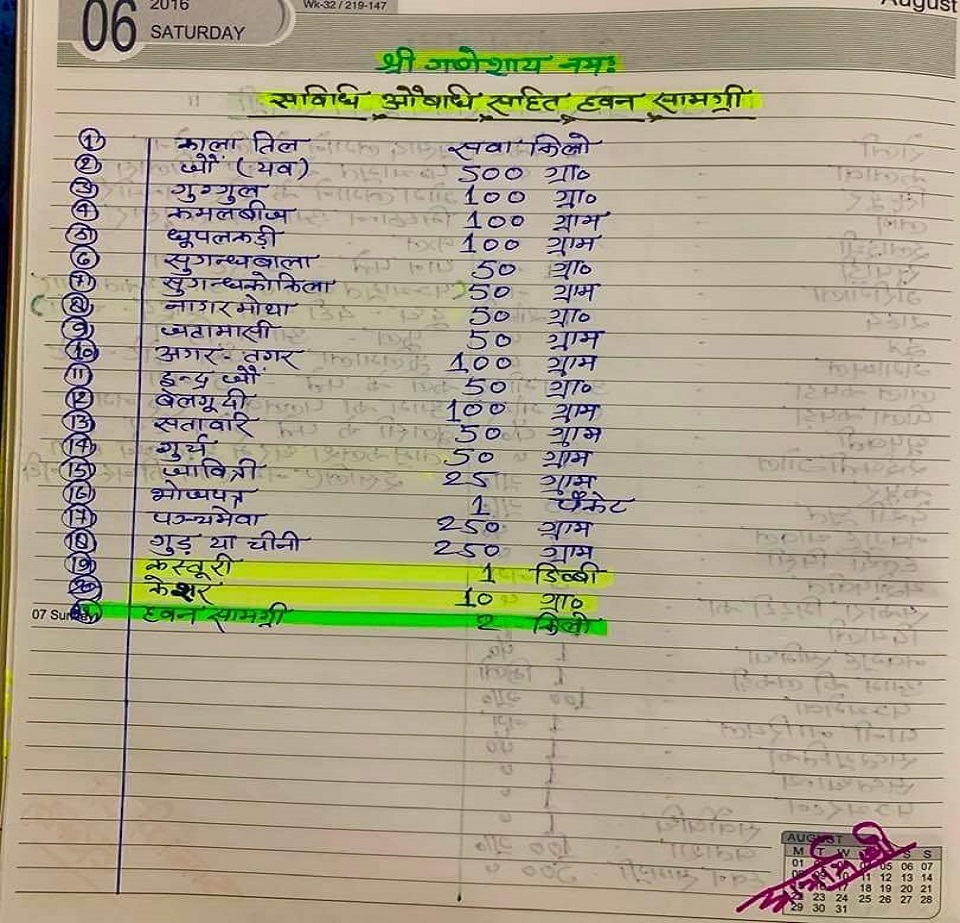 06
2016
SATURDAY
Wk-32 / 219-147
August
श्री गणेशाय नमः
सर्वािधि औषधि सहित हवन सामग्री
① काला तिल सवा किलो
② जौं (यव) 500 ग्रा०
③ गुग्गुल 100 ग्रा०
④ कमलबीज 100 ग्राम
⑤ धूपलकड़ी 100 ग्राम
⑥ सुगन्धबाला 50 ग्रा०
⑦ सुगन्धकोकिला 50 ग्राम
⑧ नागरमोथा 50 ग्रा०
⑨ जटामासी 50 ग्राम
⑩ अगर-तगर 100 ग्राम
⑪ इन्द्र जौं 50 ग्रा०
⑫ बेलगूदी 100 ग्राम
⑬ सतावरि 50 ग्राम
⑭ गुर्च 50 ग्राम
⑮ जावित्री 25 ग्राम
⑯ भोजपत्र 1 पैकेट
⑰ पञ्चमेवा 250 ग्राम
⑱ गुड़ या चीनी 250 ग्राम
⑲ कस्तूरी 1 डिब्बी
⑳ केशर 10 ग्रा०
07 Sun
हवन सामग्री 2 किलो
AUGUST
M T W S S
01 05 06 07
10 11 12 13 14
18 19 20 21
25 26 27 28
29 30 31